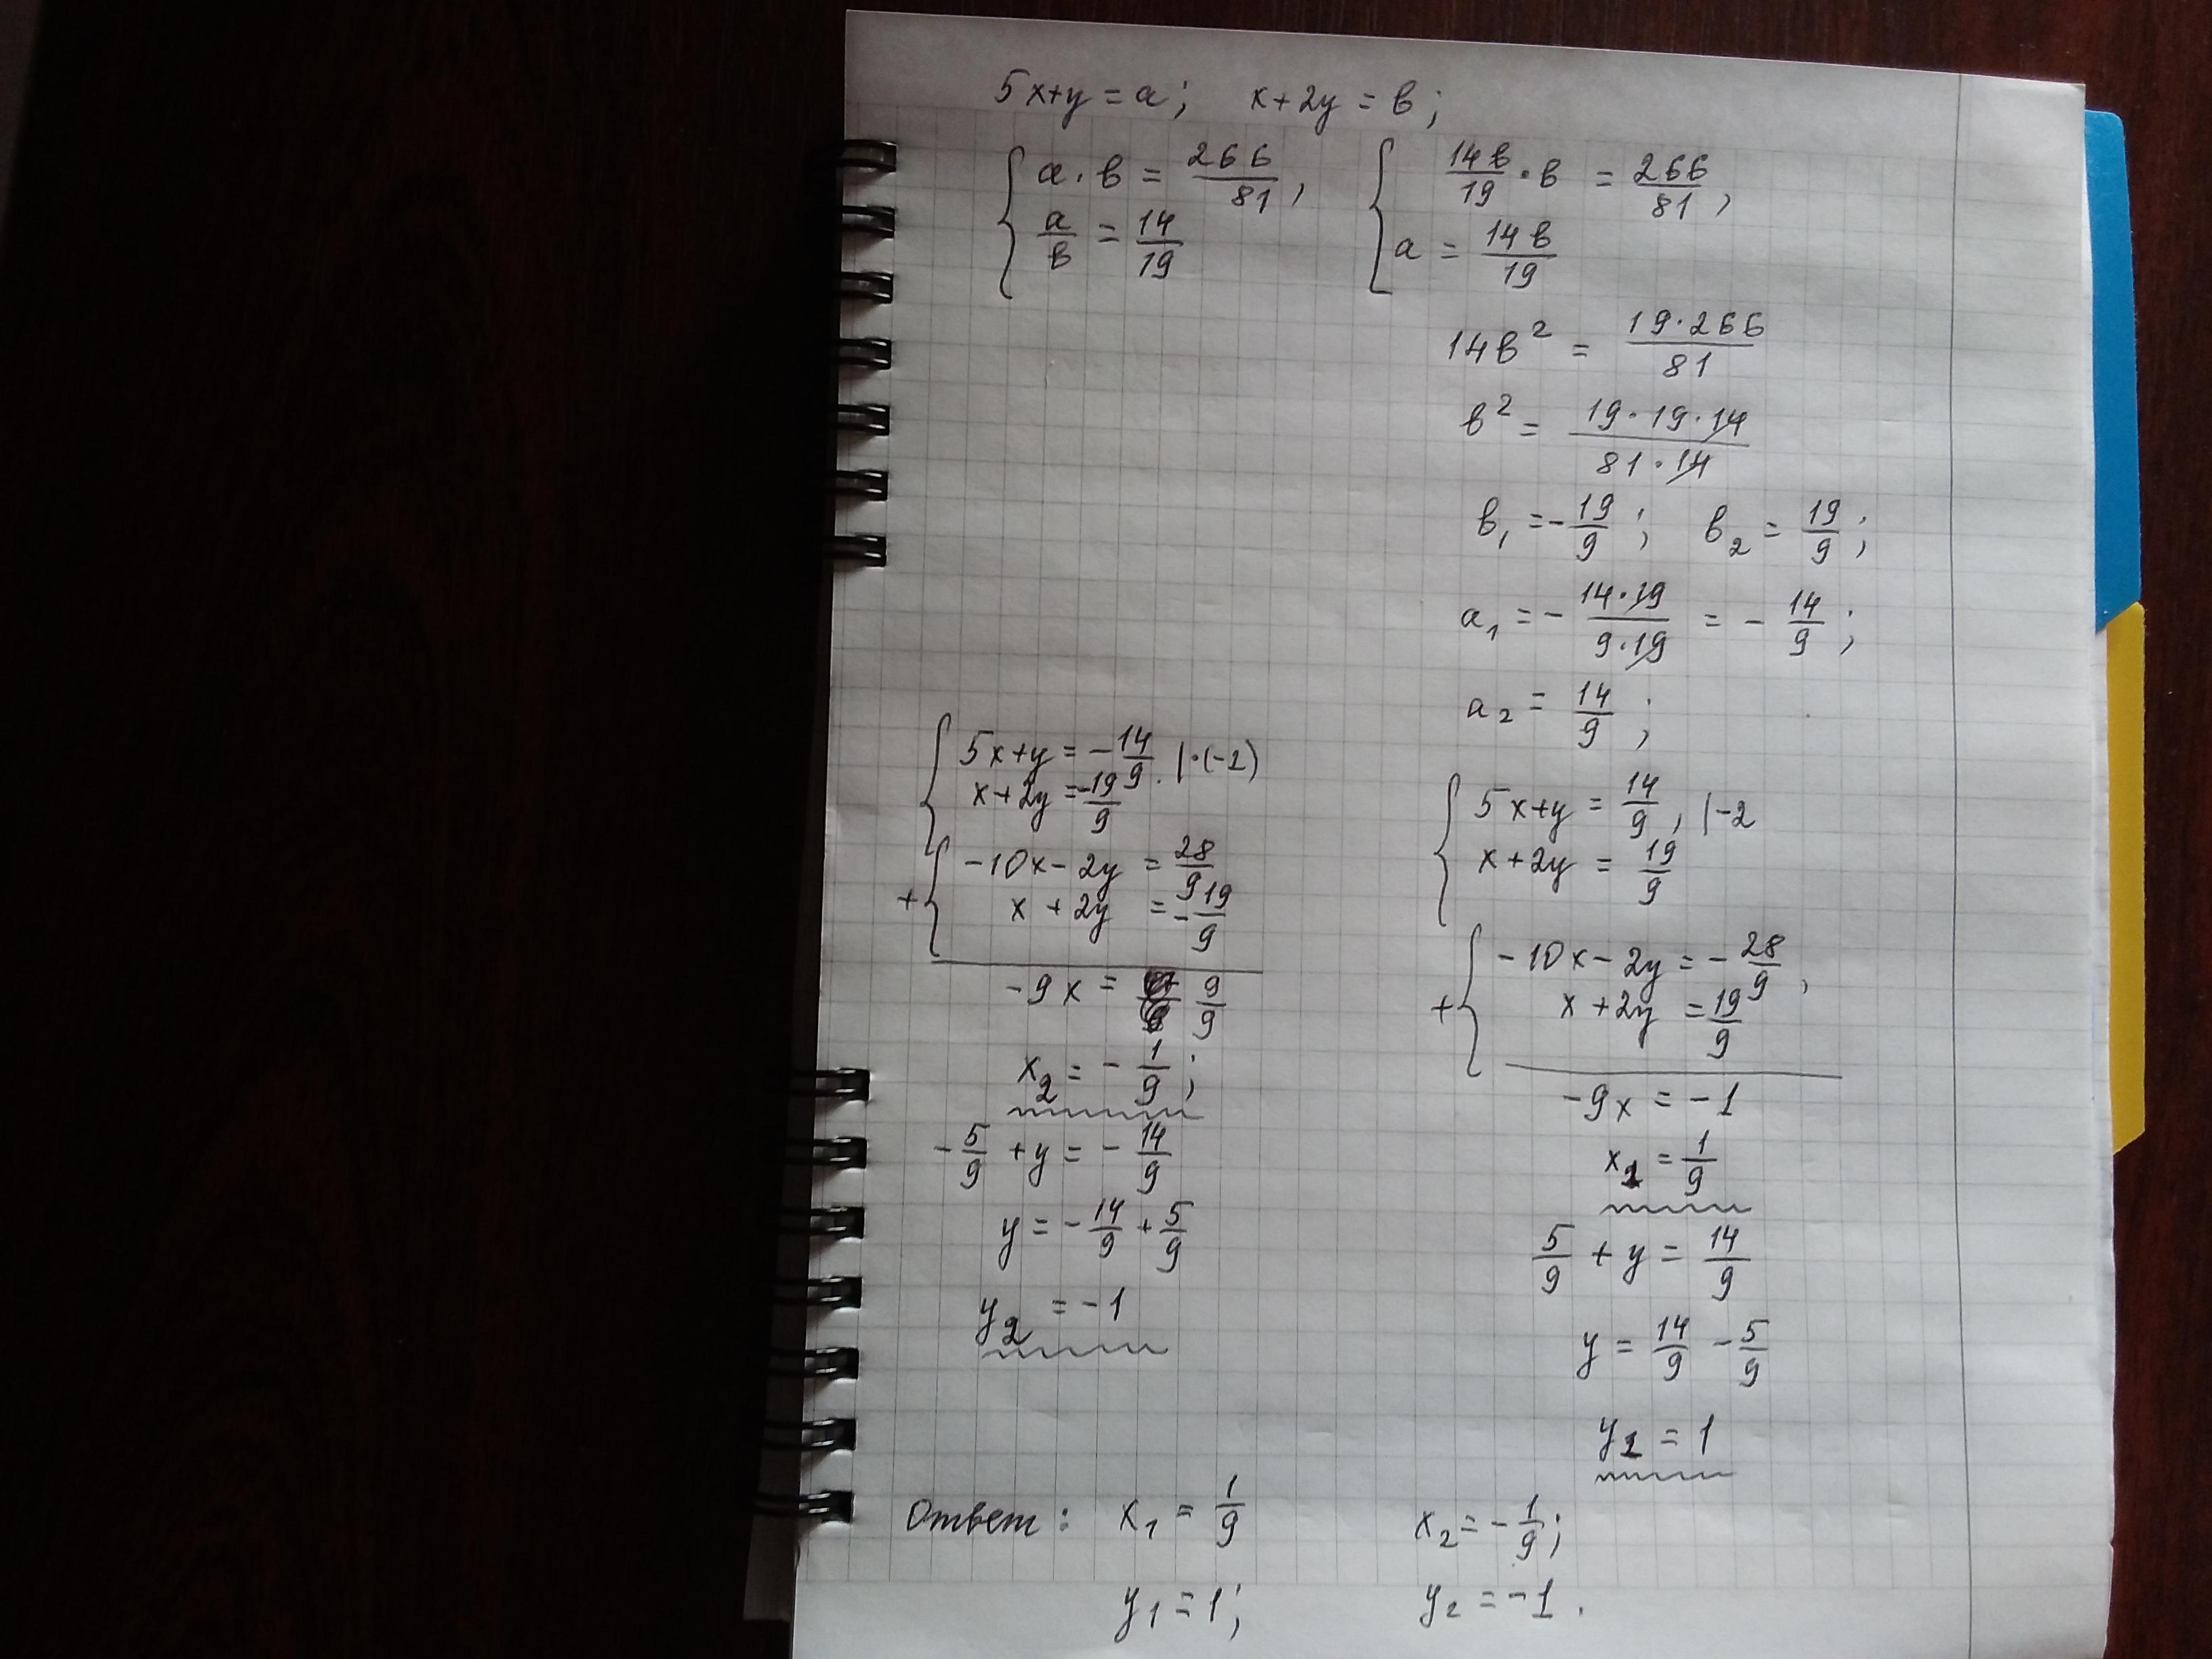 5x+y = a; x+2y = в;
{ a · в = 266/81, { 14в/19 · в = 266/81,
a/в = 14/19 a = 14в/19
14в² = 19·266/81
в² = 19·19·14/81·14
в₁ = -19/9; в₂ = 19/9;
a₁ = - 14·19/9·19 = - 14/9;
a₂ = 14/9;
{ 5x+y = -14/9. |·(-2)
x+2y = -19/9
+ { -10x-2y = 28/9
x + 2y = -19/9
-9x = 9/9
x₂ = - 1/9;
-5/9 + y = - 14/9
y = - 14/9 + 5/9
y₂ = -1
{ 5x+y = 14/9, |-2
x+2y = 19/9
+ { -10x-2y = - 28/9,
x+2y = 19/9
-9x = -1
x₁ = 1/9
5/9 + y = 14/9
y = 14/9 - 5/9
y₁ = 1
Ответ: x₁ = 1/9 x₂ = - 1/9;
y₁ = 1; y₂ = -1.